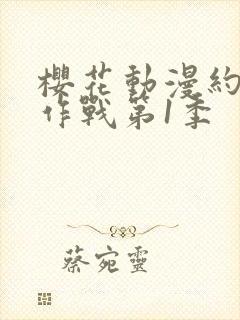 櫻花動漫約
作戰第1季
蔡宛靈